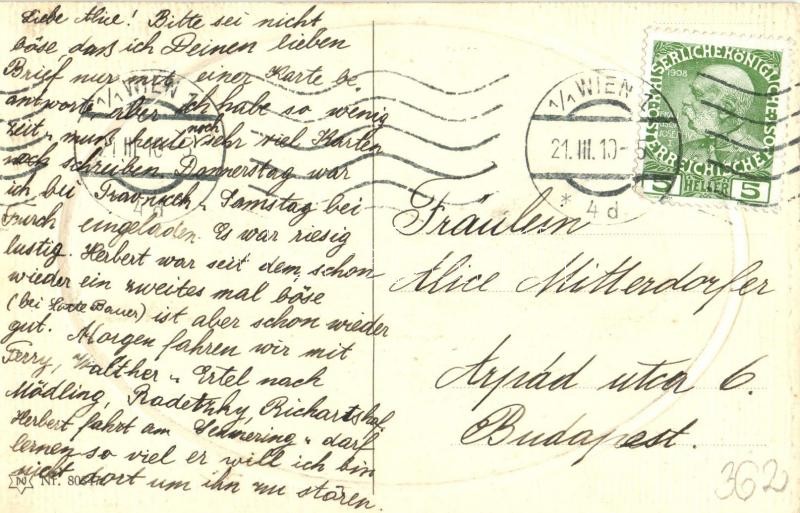 Liebe Alice! Bitte sei nicht
böse dass ich Deinen lieben
Brief nur mit einer Karte be-
antworte aber ich habe so wenig
Zeit u. muß heute noch sehr viel Karten
noch schreiben Donnerstag war
ich bei u. Samstag bei
eingeladen. Es war riesig
lustig. Herbert war seit dem schon
wieder ein zweites mal böse
(bei Lotte Bauer) ist aber schon wieder
gut. Morgen fahren wir mit
Ferry, Walther u. Ertel nach
Mödling, Richartshof,
Herbert fährt am Semmering u. darf
lernen so viel er will ich bin
nicht dort um ihn zu stören.
Nr. 805
1/1 WIEN
21. III. 10
* 4d
1/1 WIEN
21. III. 10-5
* 4d
KAISERLICHEKÖNIGLICHE
ÖSTERREICHISCHE
1908
5 HELLER 5
Fräulein
Alice Mitterdorfer
Arpád utca 6.
Budapest.
362